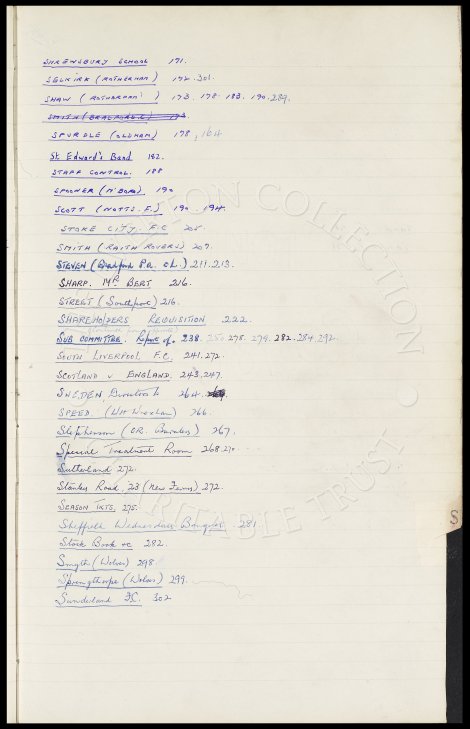 SHREWSBURY SCHOOL 171.
SELKIRK (ROTHERHAM) 172. 301.
SHAW (ROTHERHAM) 173. 178. 183. 190. 289.
SMITH (BRADFORD C) 173
SPURDLE (OLDHAM) 178, 164
St Edward's Band 182.
STAFF CONTROL. 188
SPOONER (M'BORO) 190
SCOTT (NOTTS. F.) 190. 194.
STOKE CITY. F.C 205.
SMITH (RAITH ROVERS) 207.
STEVEN (Pa. ch.) 211. 213.
SHARP. Mr BERT 216.
STREET (Southport) 216.
SHAREHOLDERS REQUISITION 222.
SUB COMMITTEE. Report of. 238. 250 275. 279. 282. 284. 292.
SOUTH LIVERPOOL F.C. 241. 272.
SCOTLAND v ENGLAND. 243. 247.
SWEDEN, Directors to 264.
SPEED. (WH Wrexham) 266.
Stephenson (CR. Barnsley) 267.
Special Treatment Room 268. 270.
Sutherland 272.
Stanley Road, 23 (New Ferry) 272.
SEASON TKTS. 275.
Sheffield Wednesday Banquet. 281.
Stock Book &c 282.
Smyth (Wolves) 298
Springthorpe (Wolves) 299.
Sunderland FC. 302
S
COLLECTION
CHARITABLE TRUST